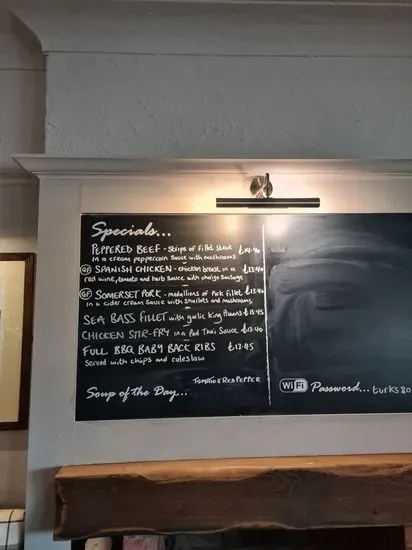 Specials...
PEPPERED BEEF - Strips of Fillet Steak £14.90
in a cream peppercorn Sauce with mushrooms
GF SPANISH CHICKEN - chicken breast in a £13.40
red wine, tomato and herb Sauce with chorizo Sausage
GF SOMERSET PORK - medallions of Pork Fillet £13.40
in a cider cream Sauce with Shallots and mushrooms
SEA BASS FILLET with garlic King Prawns £13.45
CHICKEN STIR-FRY in a Pad Thai Sauce £13.40
FULL BBQ BABY BACK RIBS £13.45
Served with chips and coleslaw
TOMATO & RED PEPPER
Soup of the Day...
WiFi Password... turks80